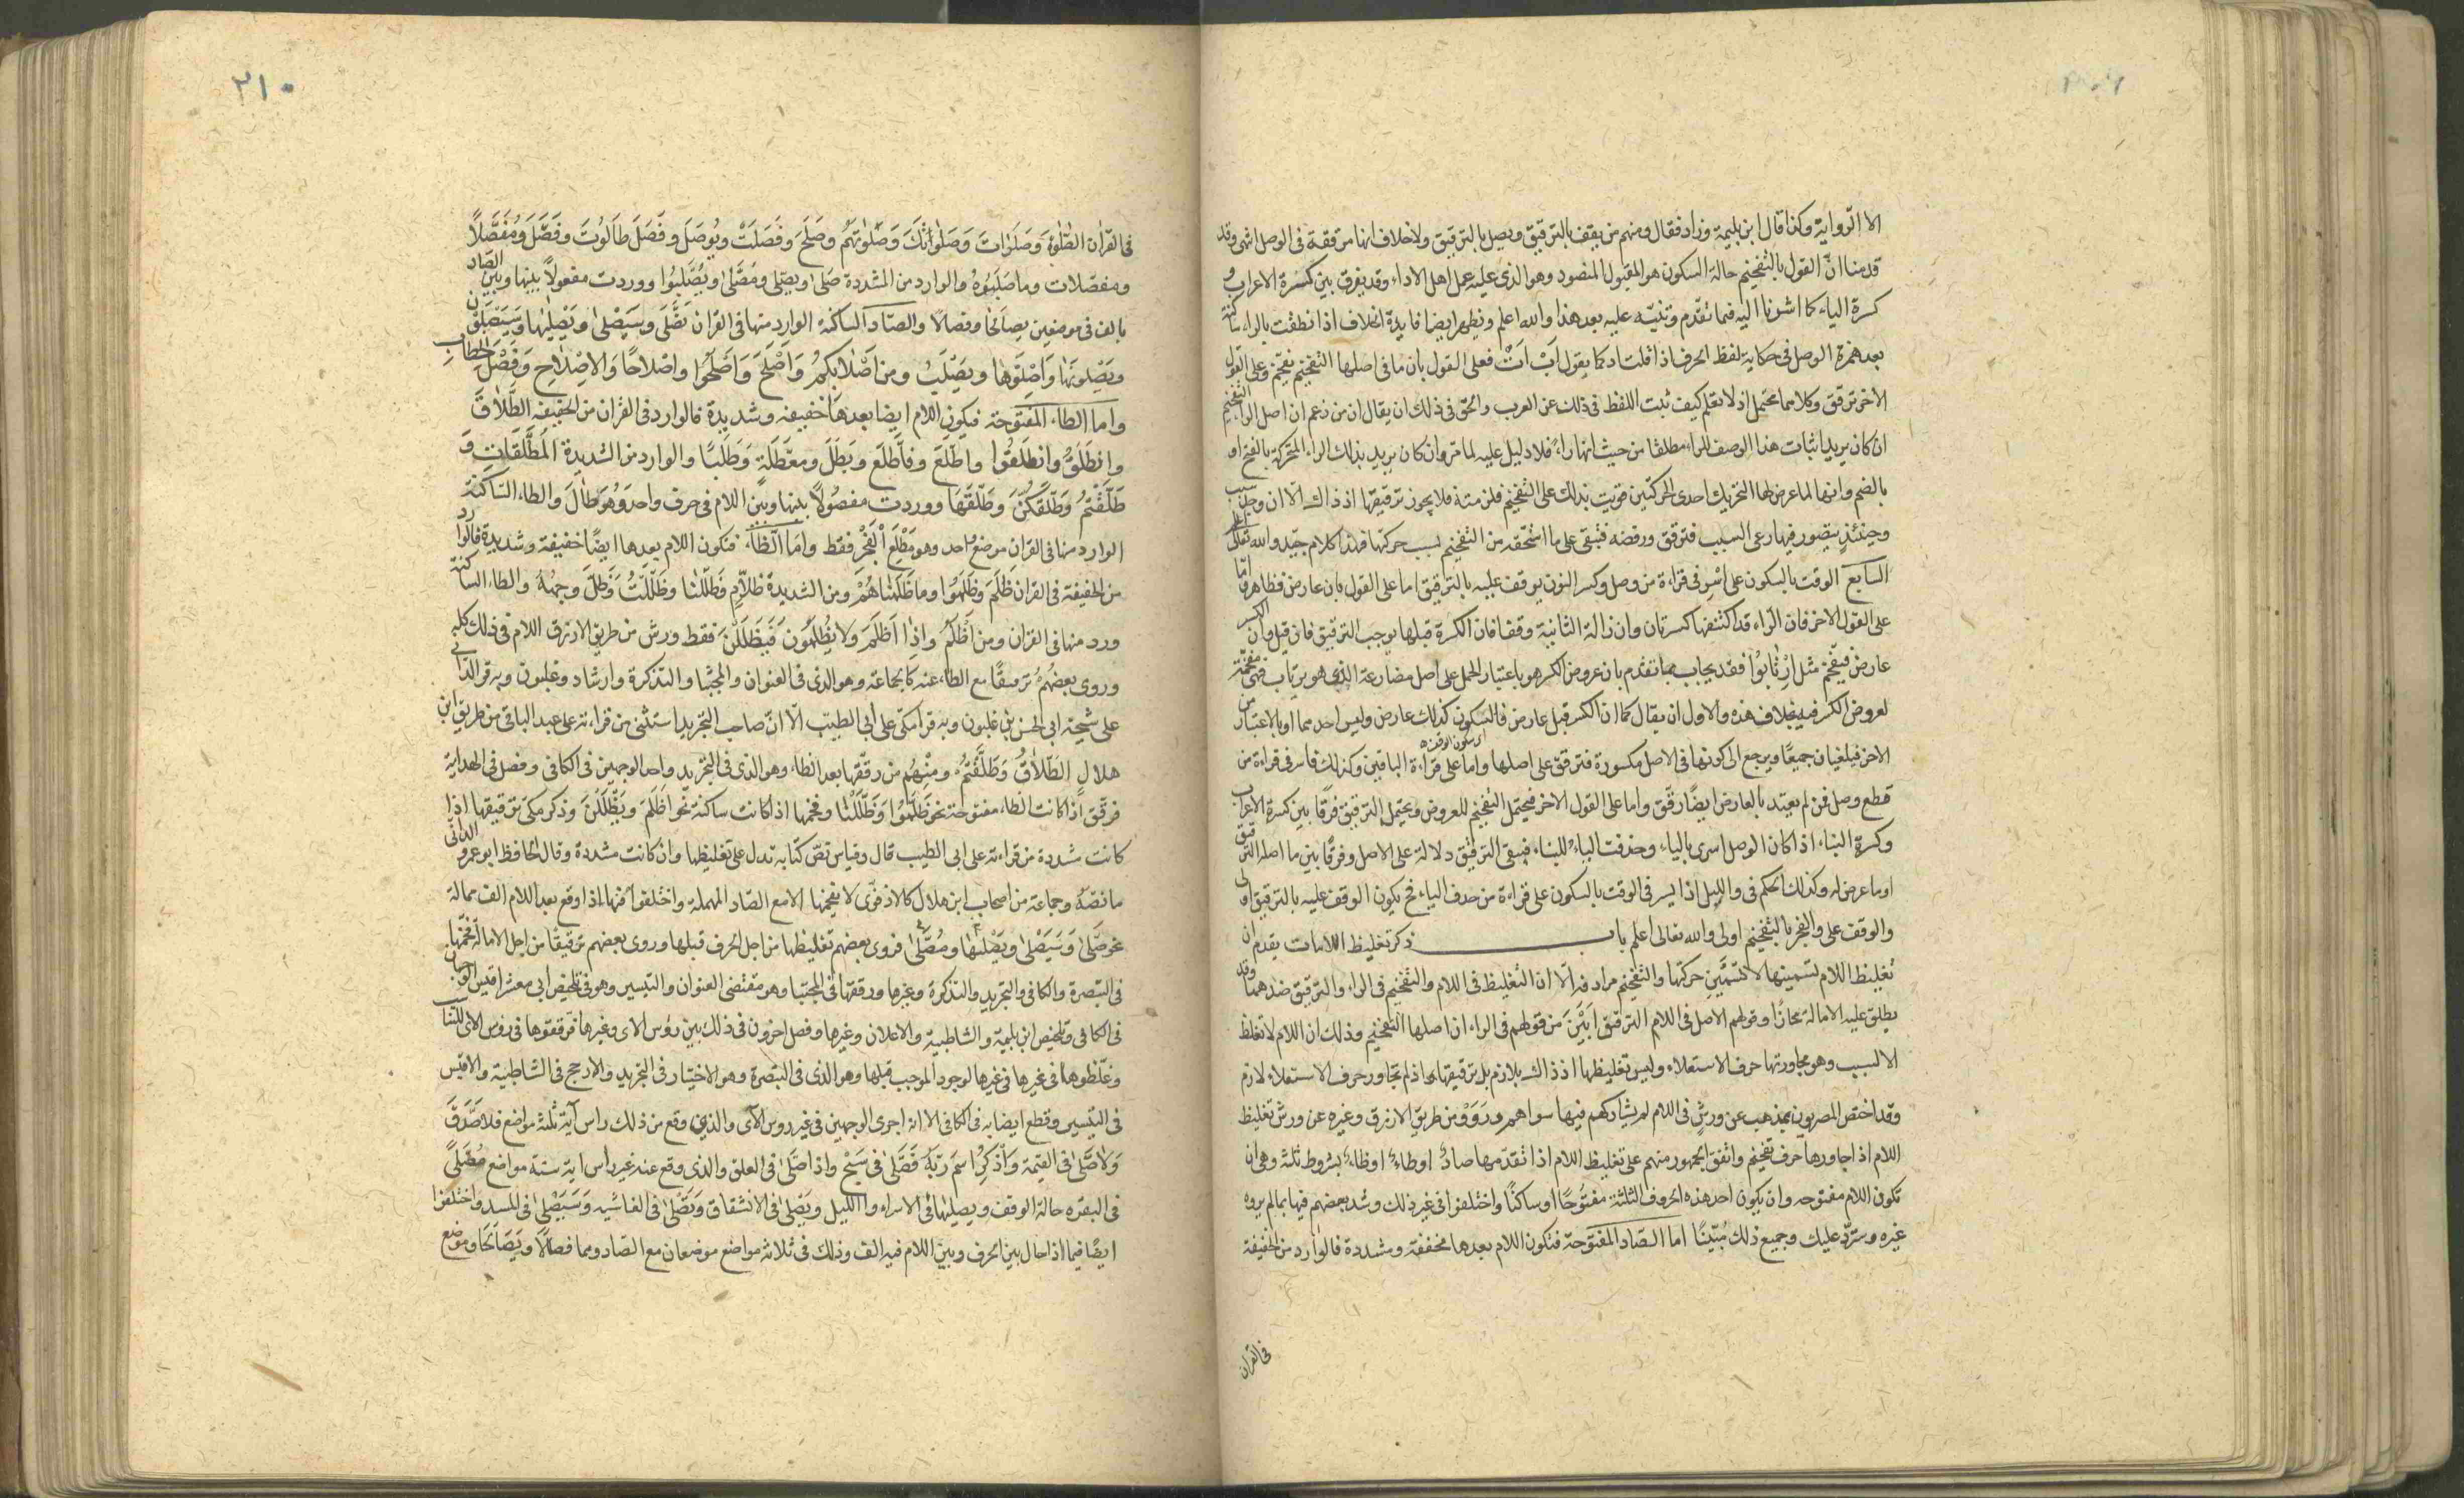 الا الرواية وكذا قال ابن بليمة وزاد فقال ومنهم من يقف بالترقيق ويصل بالترقيق ولا خلاف انها مرققة فى الوصل انتهى وقد
قدمنا انّ القول بالتفخيم حالة السكون هو المقبول المنصور وهو الذى عليه عمل اهل الاداء وقد يفرق بين كسرة الاعراب و
كسرة البناء كما اشرنا اليه فيما تقدم وننبّه عليه بعد هذا والله اعلم ونظير ايضا فايدة الخلاف اذا نطقت بالراء ساكنة
بعد همزة الوصل فى حكاية لفظ الحرف اذا قلت اد كما يقول اَبْ اَتْ فعلى القول بان ما فى اصلها التفخيم يفخم وعلى القول
الاخر ترقق وكلامهما محتمل اذ لا نعلم كيف ثبت اللفظ فى ذلك عن العرب والحق فى ذلك ان يقال ان من زعم ان اصل الراء التفخيم
ان كان يريد اثبات هذا الوصف للراء مطلقا من حيث انها راء فلا دليل عليه لما مر وان كان يريد بذلك الراء المتحركة بالفتح او
بالضم وانها لما عرض لها التحريك احدى الحركتين قويت بذلك على التفخيم فلزمته فلا يجوز ترقيقها اذ ذاك الا ان وجد سبب
وحينئذ يتصور فيها رعى السبب فترقق ورفضه فتبقى على ما استحقه من التفخيم بسبب حركتها فهذا كلام جيّد والله تعالى اعلم
السابع الوقف بالسكون على اسر فى قراءة من وصل وكسر النون يوقف عليه بالترقيق اما على القول بان عارض فظاهر واما
على القول الاخر فان الراء قد اكتنفها كسرتان وان زالة الثانية وقفا فان الكسرة قبلها توجب الترقيق فان قيل وان الكسر
عارض فيفخم مثل ارْتابُوا فقد يجاب بما تقدم بان عروض الكسر هو باعتبار الحمل على اصل مضارعة الذى هو يرتاب فهى مفخمة
لعروض الكسر فيه بخلاف هذه والاولى ان يقال كما ان الكسر قبل عارض فالسكون كذلك عارض وليس احدهما اولى بالاعتبار من
الاخر فيلغيان جميعًا ويرجع الى كونها فى الاصل مكسورة فترقق على اصلها واما على قراءة الباقين وكذلك فاسر فى قراءة من
قطع وصل فمن لم يعتد بالعارض ايضًا رقّق واما على القول الاخر فيحتمل التفخيم للعروض ويحتمل الترقيق فرقًا بين كسرة الاعراب
وكسرة البناء اذا كان الوصل اسرى بالياء وحذفت الياء للبناء فيبقى الترقيق دلالة على الاصل وفرقًا بين ما اصله الترقيق
او ما عرض له وكذلك الحكم فى والليل اذا يسر فى الوقف بالسكون على قراءة من حذف الياء فح يكون الوقف عليه بالترقيق اولى
والوقف على والفجر بالتفخيم اولى والله تعالى اعلم باب ذكر تغليظ اللامات يقدم ان
تغليظ اللام تسمينها لا تسمين حركتها والتفخيم مرادفه الا ان التغليظ فى اللام والتفخيم فى الراء والترقيق ضدهما وقد
يطلق عليه الامالة مجازًا وقولهم الاصل فى اللام الترقيق ابْيَن من قولهم فى الراء ان اصلها التفخيم وذلك ان اللام لا تغلظ
الا لسبب وهو مجاورتها حرف الاستعلاء وليس تغليظها اذ ذاك بلازم بل ترقيقها اذ لم تجاور حرف الاستعلاء لازم
وقد اختص المصريون بمذهب عن ورش فى اللام لم يشاركهم فيها سواهم ورَوَوْا من طريق الازرق وغيره عن ورش تغليظ
اللام اذ اجاورها حرف تفخيم واتفق الجمهور منهم على تغليظ اللام اذا تقدمها صادٌ او طاءٌ او ظاءٌ بشروط ثلثه وهى ان
تكون اللام مفتوحه وان يكون احد هذه الحروف الثلثة مفتوحًا او ساكنًا واختلفوا فى غير ذلك وشذ بعضهم فيها بما لم يروه
غيره وسترد عليك وجميع ذلك مُبيّنًا اما الصّاد المفتوحة فتكون اللام بعدها مخففة ومشددة فالوارد من الخفيفة
فى القران
٢١٠
فى القرآن الصّلٰوة وَصَلَوَاتٌ وَصَلَوٰاتَكَ وَصَلٰوتِهِمْ وصَلَحَ وفَصَلَتْ ويُوصَلَ وفَصَلَ طَالُوتُ وفَصَّلَ ومُفَصَّلاً
ومفصّلات وما صَلَبُوهُ والوارد من المشددة صَلّى ويصلى ومُصَلَّىٰ ويُصَلَّبُوا ووردت مفصولاً بينها وبين الصّاد
بالف فى موضعين يصالحا وفصالًا والصّاد الساكنة الوارد منها فى القران تَصْلَى وسَيَصْلىٰ ويَصْلٰيهٰا وَسَيَصْلَوْنَ
ويَصْلَونَهٰا وَاصْلَوْهَا ويَصْلَبُ ومن اَصْلَابِكُمْ وَاَصْلَحَ وَاَصْلَحُوا واِصْلاحًا وَالاِصْلاحِ وَفَصْلَ الخِطاب
واما الطاء المفتوحة فيكون اللام ايضا بعدها خفيفه وشديدة فالوارد فى القران من الخفيفه الطَّلاقَ
وانطَلَقَ وانطَلَقُوا واطَّلَعَ وفاَطَّلَعَ وبَطَلَ ومعَطَّلَةٍ وَطَلَبًا والوارد من الشديدة المطَلَّقَات وَ
طَلَّقْتُمُ وَطَلَّقَكُنَّ وَطَلَّقَهَا ووردت مفصُولاً بينها وبين اللام فى حرف واحد وَهُوَ طَالَ والطاء السّاكنة
الوارد منها فى القران موضع واحد وهو مَطْلَعِ الْفَجْرِ فقط وامّا الظّاء فتكون اللام بعدها ايضًا خفيفة وشديدة فالوارد
من الخفيفة فى القران ظَلَمَ وَظَلَمُوا وما ظَلَمْناهُمْ ومن الشديدة ظَلّاَمٍ وَظَلَّلْنا وظَلَّلَتْ وَظَلَّ وجهُهُ والظاء الساكنة
ورد منها فى القران ومن اَظْلَمُ واِذا اَظْلَمَ ولا يُظْلَمُونَ فَيَظْلَلْنَ فقط ورش من طريق الازرق اللام فى ذلك كله
وروى بعضهُم ترقيقًا مع الطاء عنه كالجماعة وهو الذى فى العنوان والمجتبا والتذكرة وارشاد وغلبون وبه قرا الدانى
على شيخه ابى الحسن بن غلبون وبه قرا مكى على ابى الطيب الا انّ صاحب التجريد استثنى من قراءته على عبد الباقى من طريق ابن
هلال الطَلاقُ وَطَلَّقْتُمُ ومنهُم من رققها بعد الظاء وهو الذى فى التجريد واحد الوجهين فى الكافى وفصل فى الهداية
فرقّق اذا كانت الظاء مفتوحة نحو ظَلَمُوا وَظَلَّلْنا وفخمها اذا كانت ساكنة نحو اَظْلَمَ ويَظْلَلْنَ وذكر مكى ترقيقها اذا
كانت مشددة من قراءته على ابى الطيب قال وقياس نصّ كتابه تدل على تغليظها وان كانت مشددة وقال الحافظ ابو عمرو الدانى
ما نصّهُ وجماعة من اصحاب ابن هلال كالاذفوى لا يفخمها الا مع الصّاد المهملة واختلفوا فيما اذا وقع بعد اللام الف ممالة
نحو صَلّىٰ وَسَيَصْلىٰ ويَصْليٰهٰا ومُصَلّىٰ فروى بعضهم تغليظها من اجل الحرف قبلها وروى بعضهم ترقيقًا من اجل الامالة ففخّمها
فى التبصرة والكافى والتجريد والتذكرة وغيرها ورققها فى المجتبا وهو مقتضى العنوان والتيسير وهو فى تلخيص ابى معشر اقيس الوجهان
فى الكافى وتلخيص ابن بليمة والشاطبية والاعلان وغيرها وفصل اخرون فى ذلك بين رؤس الاى وغيرها فرققوها فى رؤس الاى للتناسب
وغلّظوها فى غيرها لوجود الموجب قبلها وهو الذى فى التبصرة وهو الاختيار فى التجريد والارجح فى الشاطبية والاقيس
فى التيسير وقطع ايضا به فى الكافى الا انه اجرى الوجهين فى غير روس الآى والذى وقع من ذلك راس آية ثلثة مواضع فلا صَدَّقَ
وَلاَ صَلّىٰ فى القيمة وَذكَرَ اسمَ رَبّهِ فَصَلّىٰ فى سَبّح واذا صَلّىٰ فى العلق والذى وقع عنه غير راس اية ستة مواضع مُصَلًّى
فى البقره حالة الوقف ويصليها فى الاسراء والليل ويَصْلىٰ فى الانشقاق وتَصْلىٰ فى الغاشيه وَسَيَصْلىٰ فى المسد واختلفوا
ايضًا فيما اذا حال بين الحرف وبين اللام فيه الف وذلك فى ثلاثة مواضع موضعان مع الصّاد وهما فصالًا ويَصّالَحَا وموضع